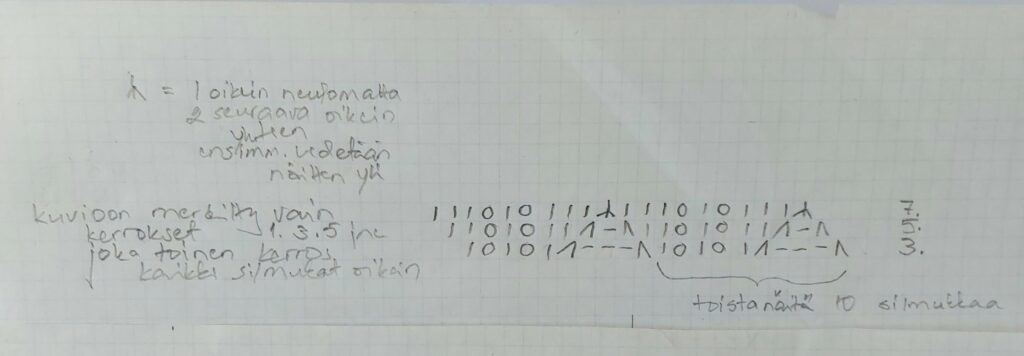 ⅄ = 1 oikein neulomatta
2 seuraava oikein
yhteen
ensimm. vedetään
näitten yli
kuvioon merkitty vain
kerrokset 1. 3. 5 jne
joka toinen kerros
kaikki silmukat oikein
1 1 1 0 1 0 1 1 1 ⅄ 1 1 1 0 1 0 1 1 1 ⅄ 7.
1 1 0 1 0 1 1 1 - Λ 1 1 0 1 0 1 1 1 - Λ 5.
1 0 1 0 1 1 - - - Λ 1 0 1 0 1 1 - - - Λ 3.
toista näitä 10 silmukkaa